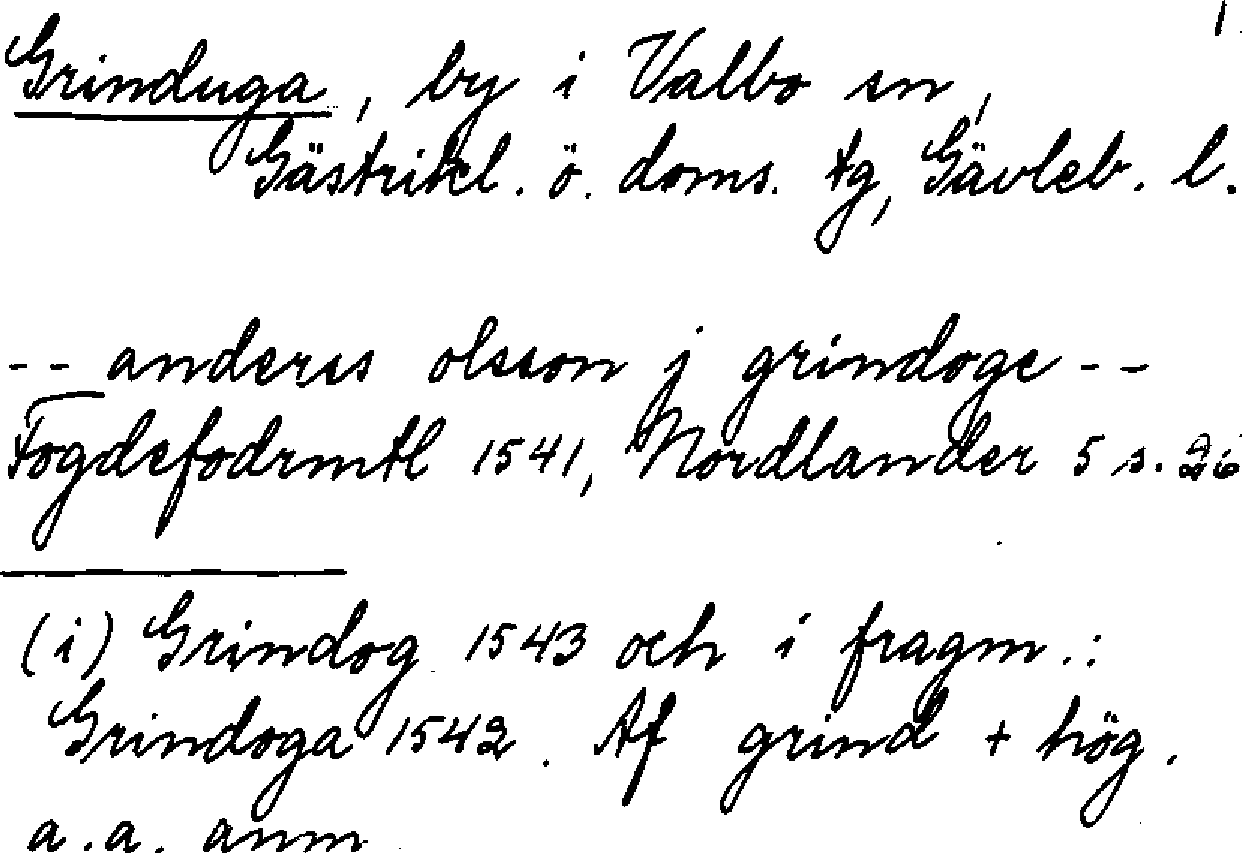 1.
Grinduga, by i Valbo sn,
Gästrikl. ö. doms. tg, Gävleb. l.
-- anders olsson j grindoge --
Fogdefodrmtl 1541, Nordlander 5 s. 26
(i) Grindog 1543 och i fragm.:
Grindoga 1542. Af grind + hög.
a.a. anm.